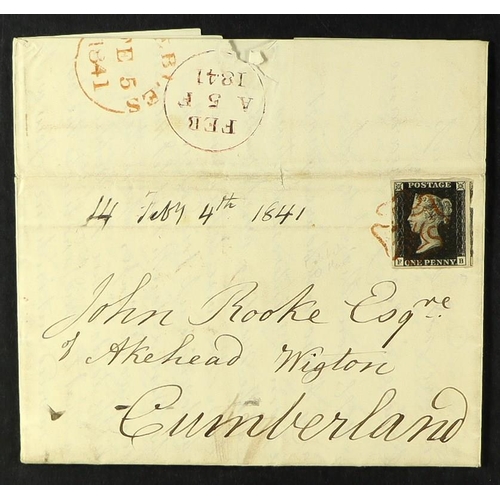 FE 5
1841
FEB
A 5 F
1841
14 Feby 4th 1841
POSTAGE
ONE PENNY
John Rooke Esqre
of Akehead Wigton
Cumberland